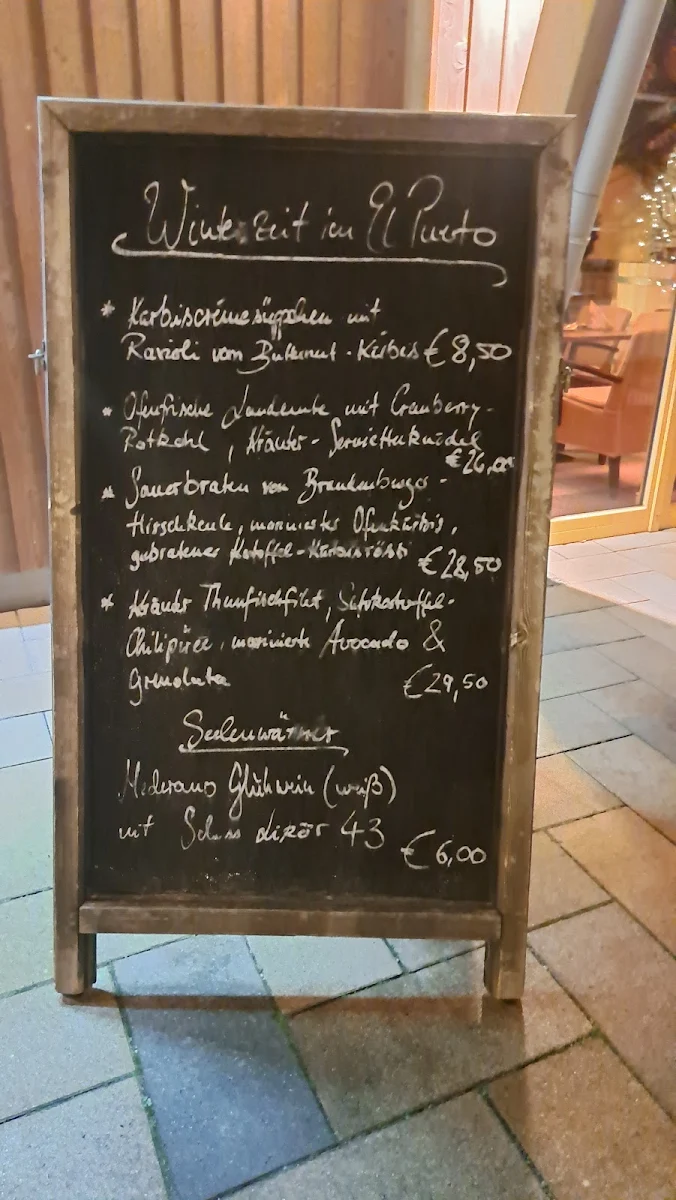 Winterzeit im El Puerto
* Kürbiscrémesüppchen mit
Ravioli vom Butternut-Kürbis € 8,50
* Ofenfrische Landente mit Cranberry-
Rotkohl, Kräuter-Serviettenknödel
€ 26,00
* Sauerbraten von Brandenburger-
Hirschkeule, marinierter Ofenkürbis,
gebratener Kartoffel-Kürbisrösti € 28,50
* Kräuter Thunfischfilet, Süßkartoffel-
Chilipüree, marinierte Avocado &
Gremolata € 29,50
Seelenwärmer
Mederaño Glühwein (weiß)
mit Schuss Likör 43 € 6,00